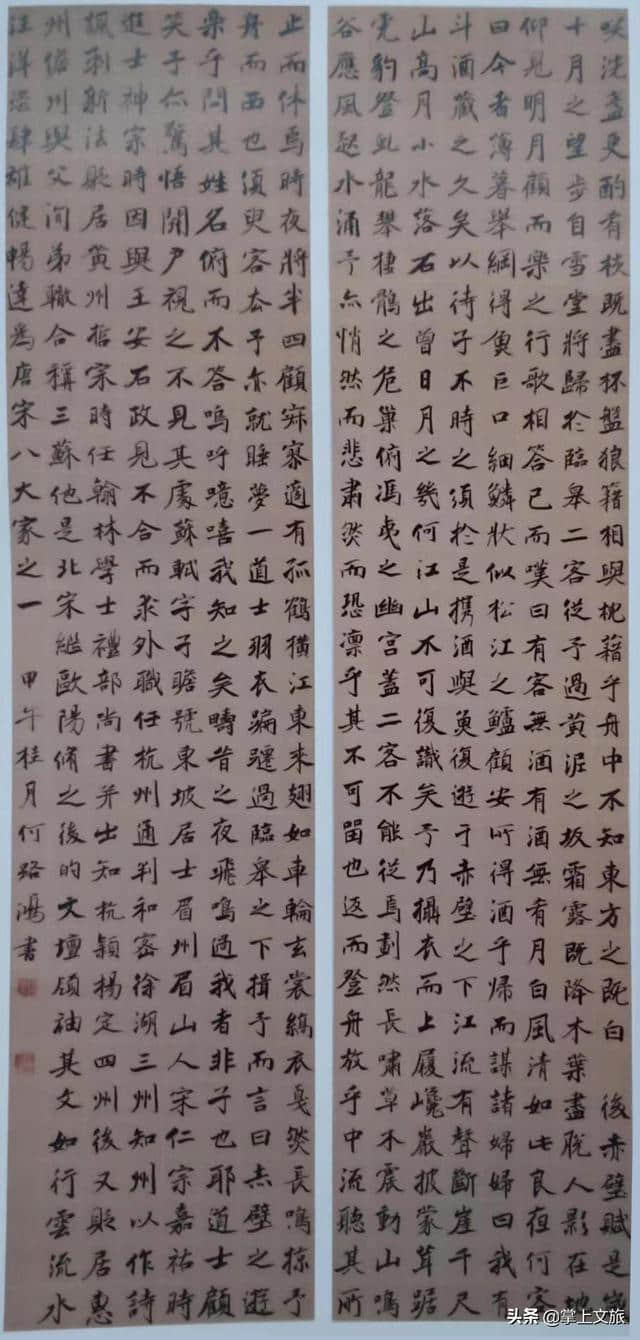 笑洗盞更酌有核既盡杯盤狼籍相與枕籍乎舟中不知東方之既白 後赤壁賦是歲
十月之望步自雪堂將歸於臨皋二客從予過黃泥之坂霜露既降木葉盡脫人影在地
仰見明月顧而樂之行歌相答已而嘆曰有客無酒有酒無肴月白風清如此良夜何客
曰今者薄暮舉網得魚巨口細鱗狀似松江之鱸顧安所得酒乎歸而謀諸婦婦曰我有
斗酒藏之久矣以待子不時之須於是携酒與魚復遊于赤壁之下江流有聲斷崖千尺
山高月小水落石出曾日月之幾何江山不可復識矣予乃攝衣而上履巉巖披蒙茸踞
虎豹登虬龍攀棲鶻之危巢俯馮夷之幽宮蓋二客不能從焉劃然長嘯草木震動山鳴
谷應風起水涌予亦悄然而悲肅然而恐凜乎其不可留也返而登舟放乎中流聽其所
止而休焉時夜將半四顧寂寥適有孤鶴橫江東來翅如車輪玄裳縞衣戛然長鳴掠予
舟而西也須臾客去予亦就睡夢一道士羽衣蹁躚過臨皋之下揖予而言曰赤壁之遊
樂乎問其姓名俯而不答嗚呼噫嘻我知之矣疇昔之夜飛鳴過我者非子也耶道士顧
笑予亦驚悟開戶視之不見其處蘇軾字子瞻號東坡居士眉州眉山人宋仁宗嘉祐時
進士神宗時因與王安石政見不合而求外職任杭州通判和密徐湖三州知州以作詩
諷刺新法貶居黃州哲宗時任翰林學士禮部尚書并出知杭穎揚定四州後又貶居惠
州儋州與父洵弟轍合稱三蘇他是北宋繼歐陽脩之後的文壇領袖其文如行雲流水
汪洋恣肆雄健暢達為唐宋八大家之一 甲午桂月何路鴻書
头条 @掌上文旅